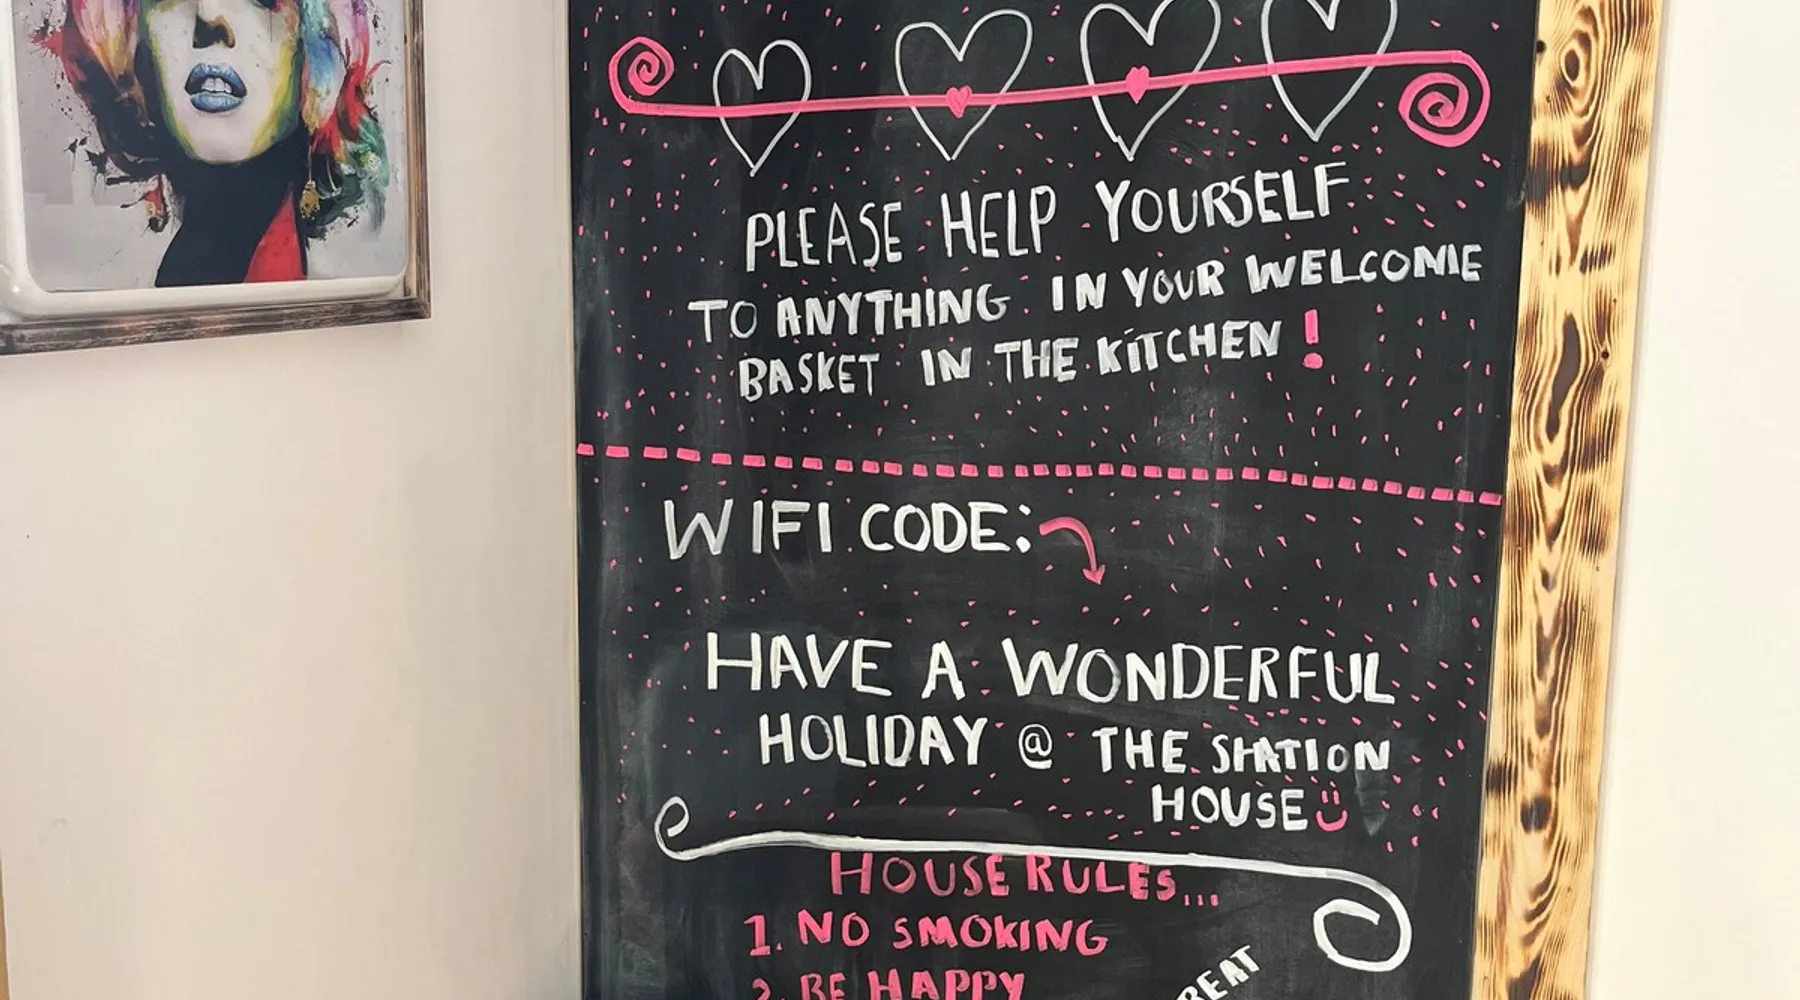 PLEASE HELP YOURSELF
TO ANYTHING IN YOUR WELCOME
BASKET IN THE KITCHEN!
WIFI CODE:
HAVE A WONDERFUL
HOLIDAY @ THE STATION
HOUSE
HOUSE RULES...
1. NO SMOKING
2. BE HAPPY